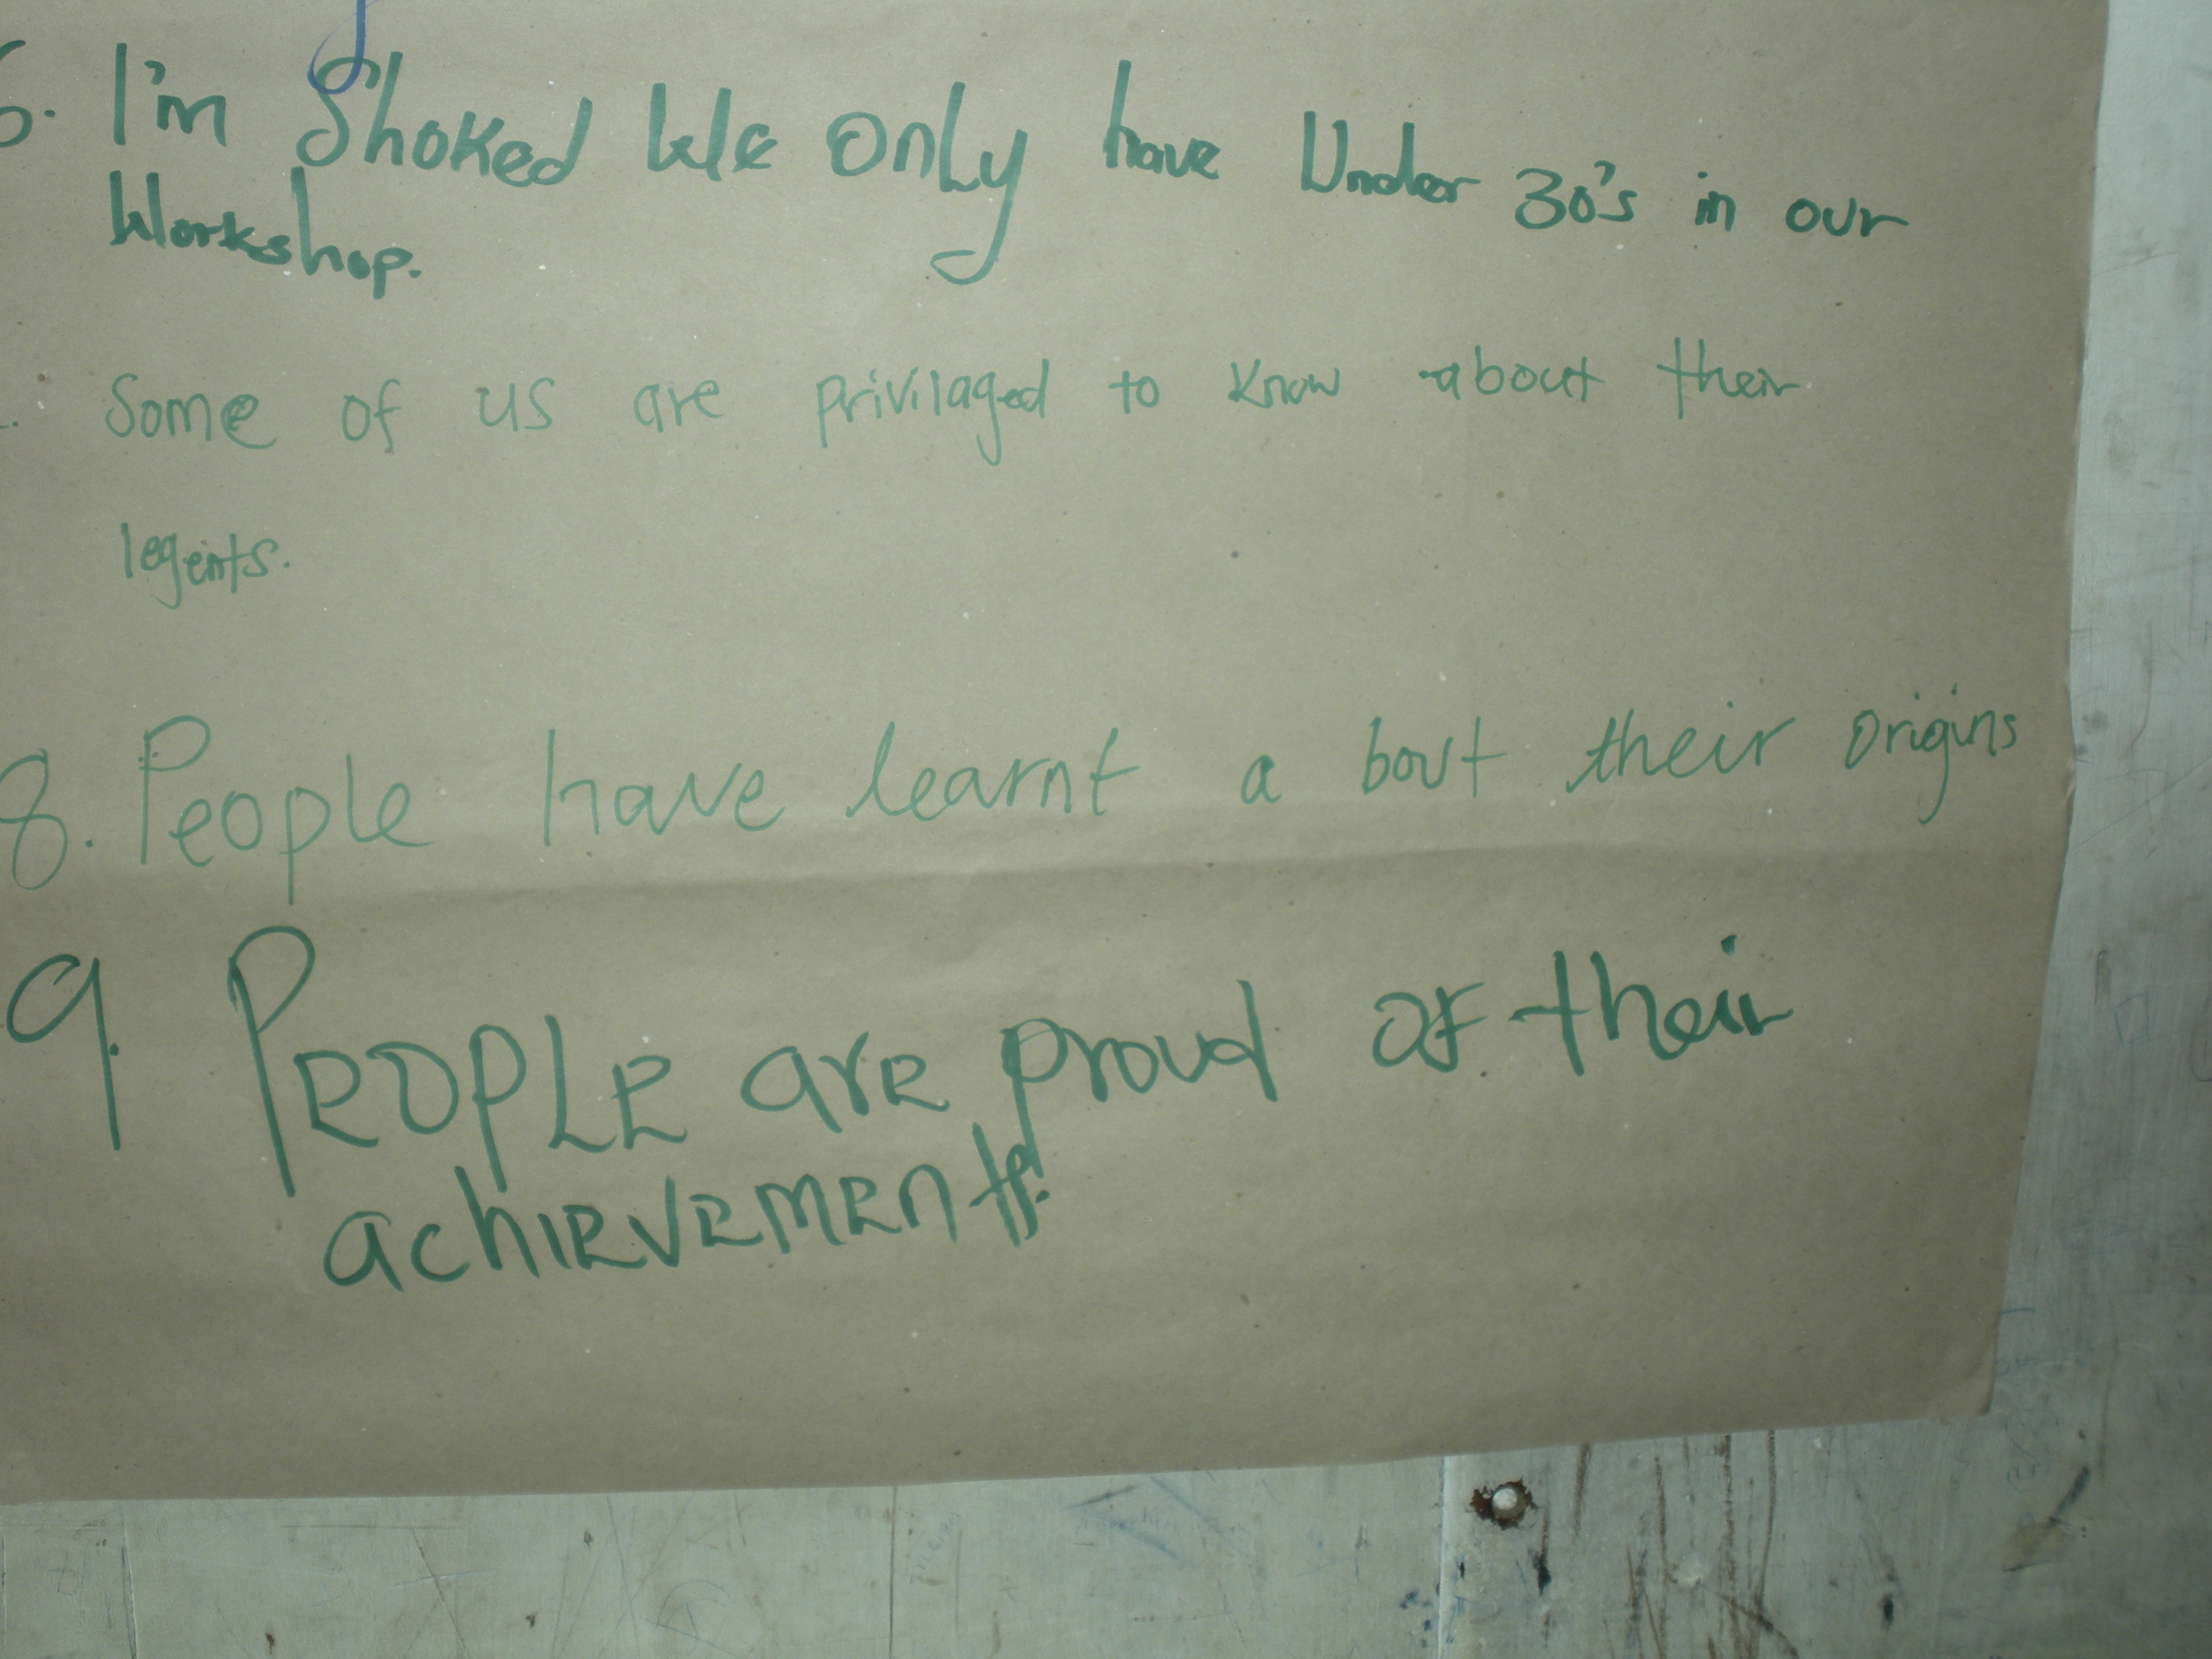 6. I'm Shoked We Only have Under 30's in our
Workshop.
Some of us are privilaged to know about their
legents.
8. People have learnt a bout their origins
9. PEOPLE are proud of their
achievements.